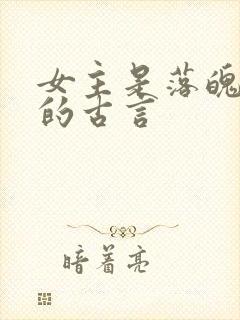 女主是落魄
的古言
暗着亮